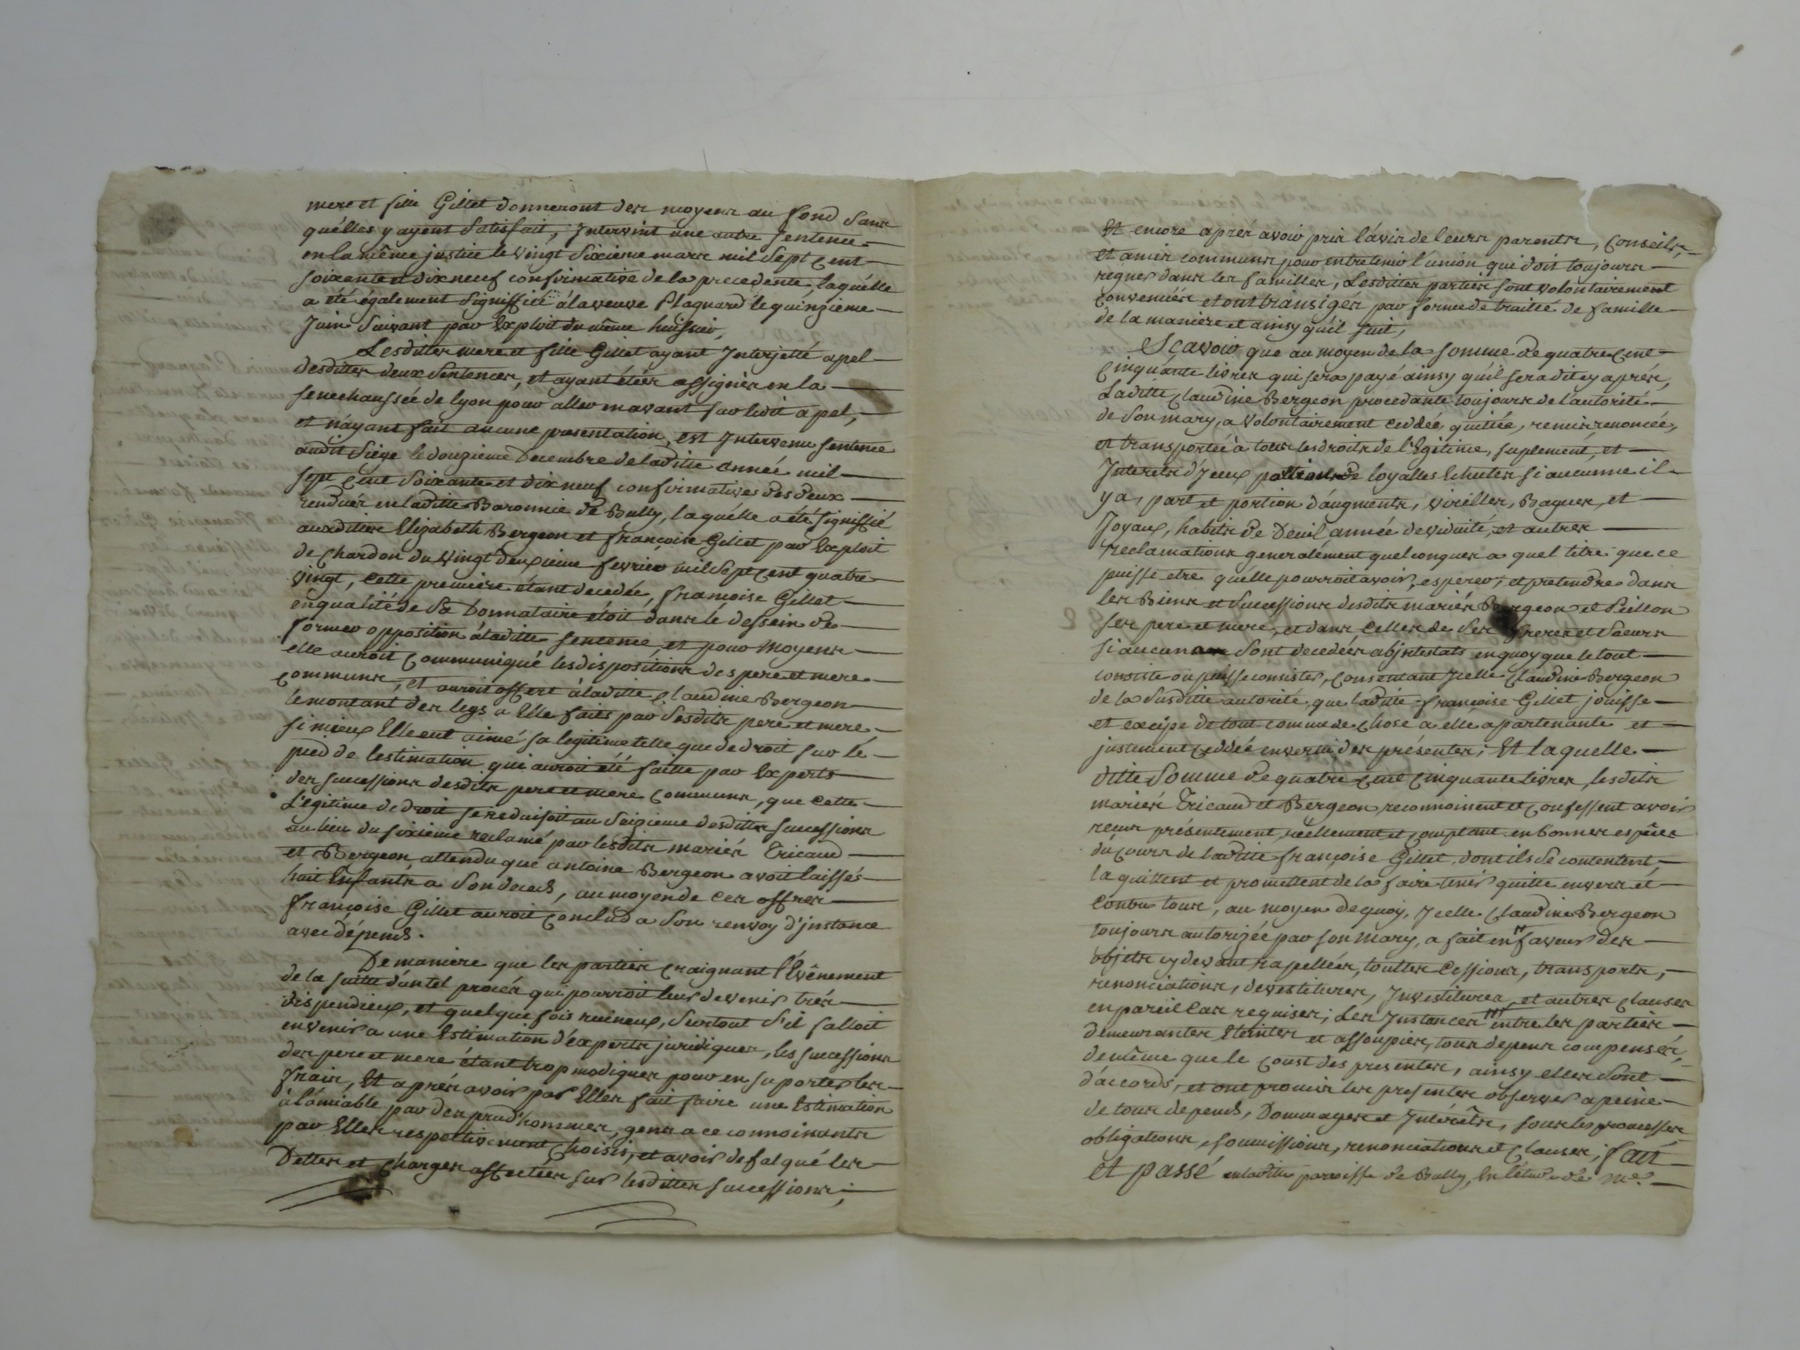 mere et fille Gillet donneront des moyens au fond sans
quélles y ayent satisfait, Intervint une autre sentence
en la même justice le vingt sixieme mars mil sept cent
soixante et dix neuf confirmative de la precedente, laquélle
a été également signiffiée à la veuve Plagnard le quinzieme
Juin suivant par Exploit du même huissier,
Lesdittes mere et fille Gillet ayant Interjetté apel
desdittes deux sentences, et ayant étées assignées en la
senechaussée de Lyon pour aller en avant sur ledit apel,
et n'ayant fait aucune presentation, est Intervenu sentence
audit siege le douzieme Decembre de laditte année mil
sept cent soixante et dix neuf confirmatives des deux
renduës en laditte Baronnie de Bully, laquélle a été signiffié
auxdittes Elizabeth Bergeon et françoise Gillet par Exploit
de Chardon du vingt deuxieme fevrier mil sept cent quatre
vingt, cette premiere étant decedée, françoise Gillet
en qualité de sa Donnataire étoit dans le dessein de
former opposition à laditte sentence, et pour moyens
elle auroit communiqué les dispositions des pere et mere
communs, et auroit offert à laditte Claudine Bergeon
le montant des legs a Elle faits par sesdits pere et mere,
si mieux Elle eut aimé sa legitime telle que de droit sur le
pied de lestimation qui auroit été faitte par Experts
des successions desdits pere et mere communs, que cette
Légitime de droit se reduisoit au seizieme desdittes successions
au lieu du sixieme reclamé par lesdits mariés Tricaud
et Bergeon, attendu que antoine Bergeon avoit laissés
huit Enfants a son decès, au moyen de ces offres
françoise Gillet auroit conclud a son renvoy d'instance
avec dépends.
De maniere que les parties craignant l'Evênement
de la suitte d'un tel procès qui pourroit leur devenir très
dispendieux, et quelque fois ruineux, surtout s'il falloit
en venir a une Estimation d'éxperts juridiques, les successions
des pere et mere étant trop modiques pour en suporter les
frais, Et aprés avoir par Elles fait faire une Estimation
à lamiable par des prud'hommes, gens a ce connoissants
par Elles respectivement choisis, et avoir defalqué les
Dettes et charges affectées sur lesdittes successions;
Et encore aprés avoir pris l'avis de leurs parents, conseils,
et amis communs pour entretenir l'union qui doit toujours
regner dans les familles, Lesdittes parties sont volontairement
conveniës et ont transigés par forme de traitté de famille
de la maniere et ainsy qu'il suit,
Sçavoir que au moyen de la somme de quatre cent
cinquante livres qui sera payé ainsy qu'il sera dit cy aprés,
Laditte Claudine Bergeon procedante toujours de l'autorité
de son mary, a volontairement ceddée, quittée, remis renoncée,
et transportée à tous les droits de Légitime, suplement, et
Interets d'Iceux de loyalles Echutes si aucunne il
ya, part et portion d'augments, Vireilles, Bagues, et
Joyaux, habits de Deuil, année de viduite, et autres
reclamations generalement quelconques a quel titre que ce
puisse etre qu'élle pourroit avoir, esperer, et pretendre dans
les Biens et successions desdits mariés Bergeon et Peillon
ses pere et mere, et dans celles de ses freres et soeurs
si aucuns sont decedés abjntestats en quoy que le tout
consiste ou puisse consister, consentant Jcelle Claudine Bergeon
de la susditte autorité, que laditte françoise Gillet jouisse
et excipe de tout comme de chose a elle apartenante et
justement ceddée en vertu des présentes; Et laquelle
ditte somme de quatre cent cinquante livres, lesdits
mariés Tricaud et Bergeon, reconnoissent et confessent avoir
reçus présentement, réellement et comptant en bonnes espéces
du cours de laditte françoise Gillet, dont ils se contentent,
la quittent et promettent de la faire tenir quitte envers et
contre tous, au moyen de quoy, Jcelle Claudine Bergeon
toujours autorizée par son mary, a fait en faveur des
objets cy devant rapellées, touttes Cessions, transports,
renonciations, devestitures, Jnvestitures, et autres clauses
en pareil cas requises; Les Jnstances entre les parties
demeurantes Eteintes et assoupies, tous depens compensés,
de même que le coust des presentes, ainsy elles sont
d'accords, et ont promis les presentes observer a peine
de tous depends, Dommages et Intérêts, sous les promesses
obligations, soumissions, renonciations et clauses; fait
et passé en laditte paroisse de Bully, en l'étude de Me.